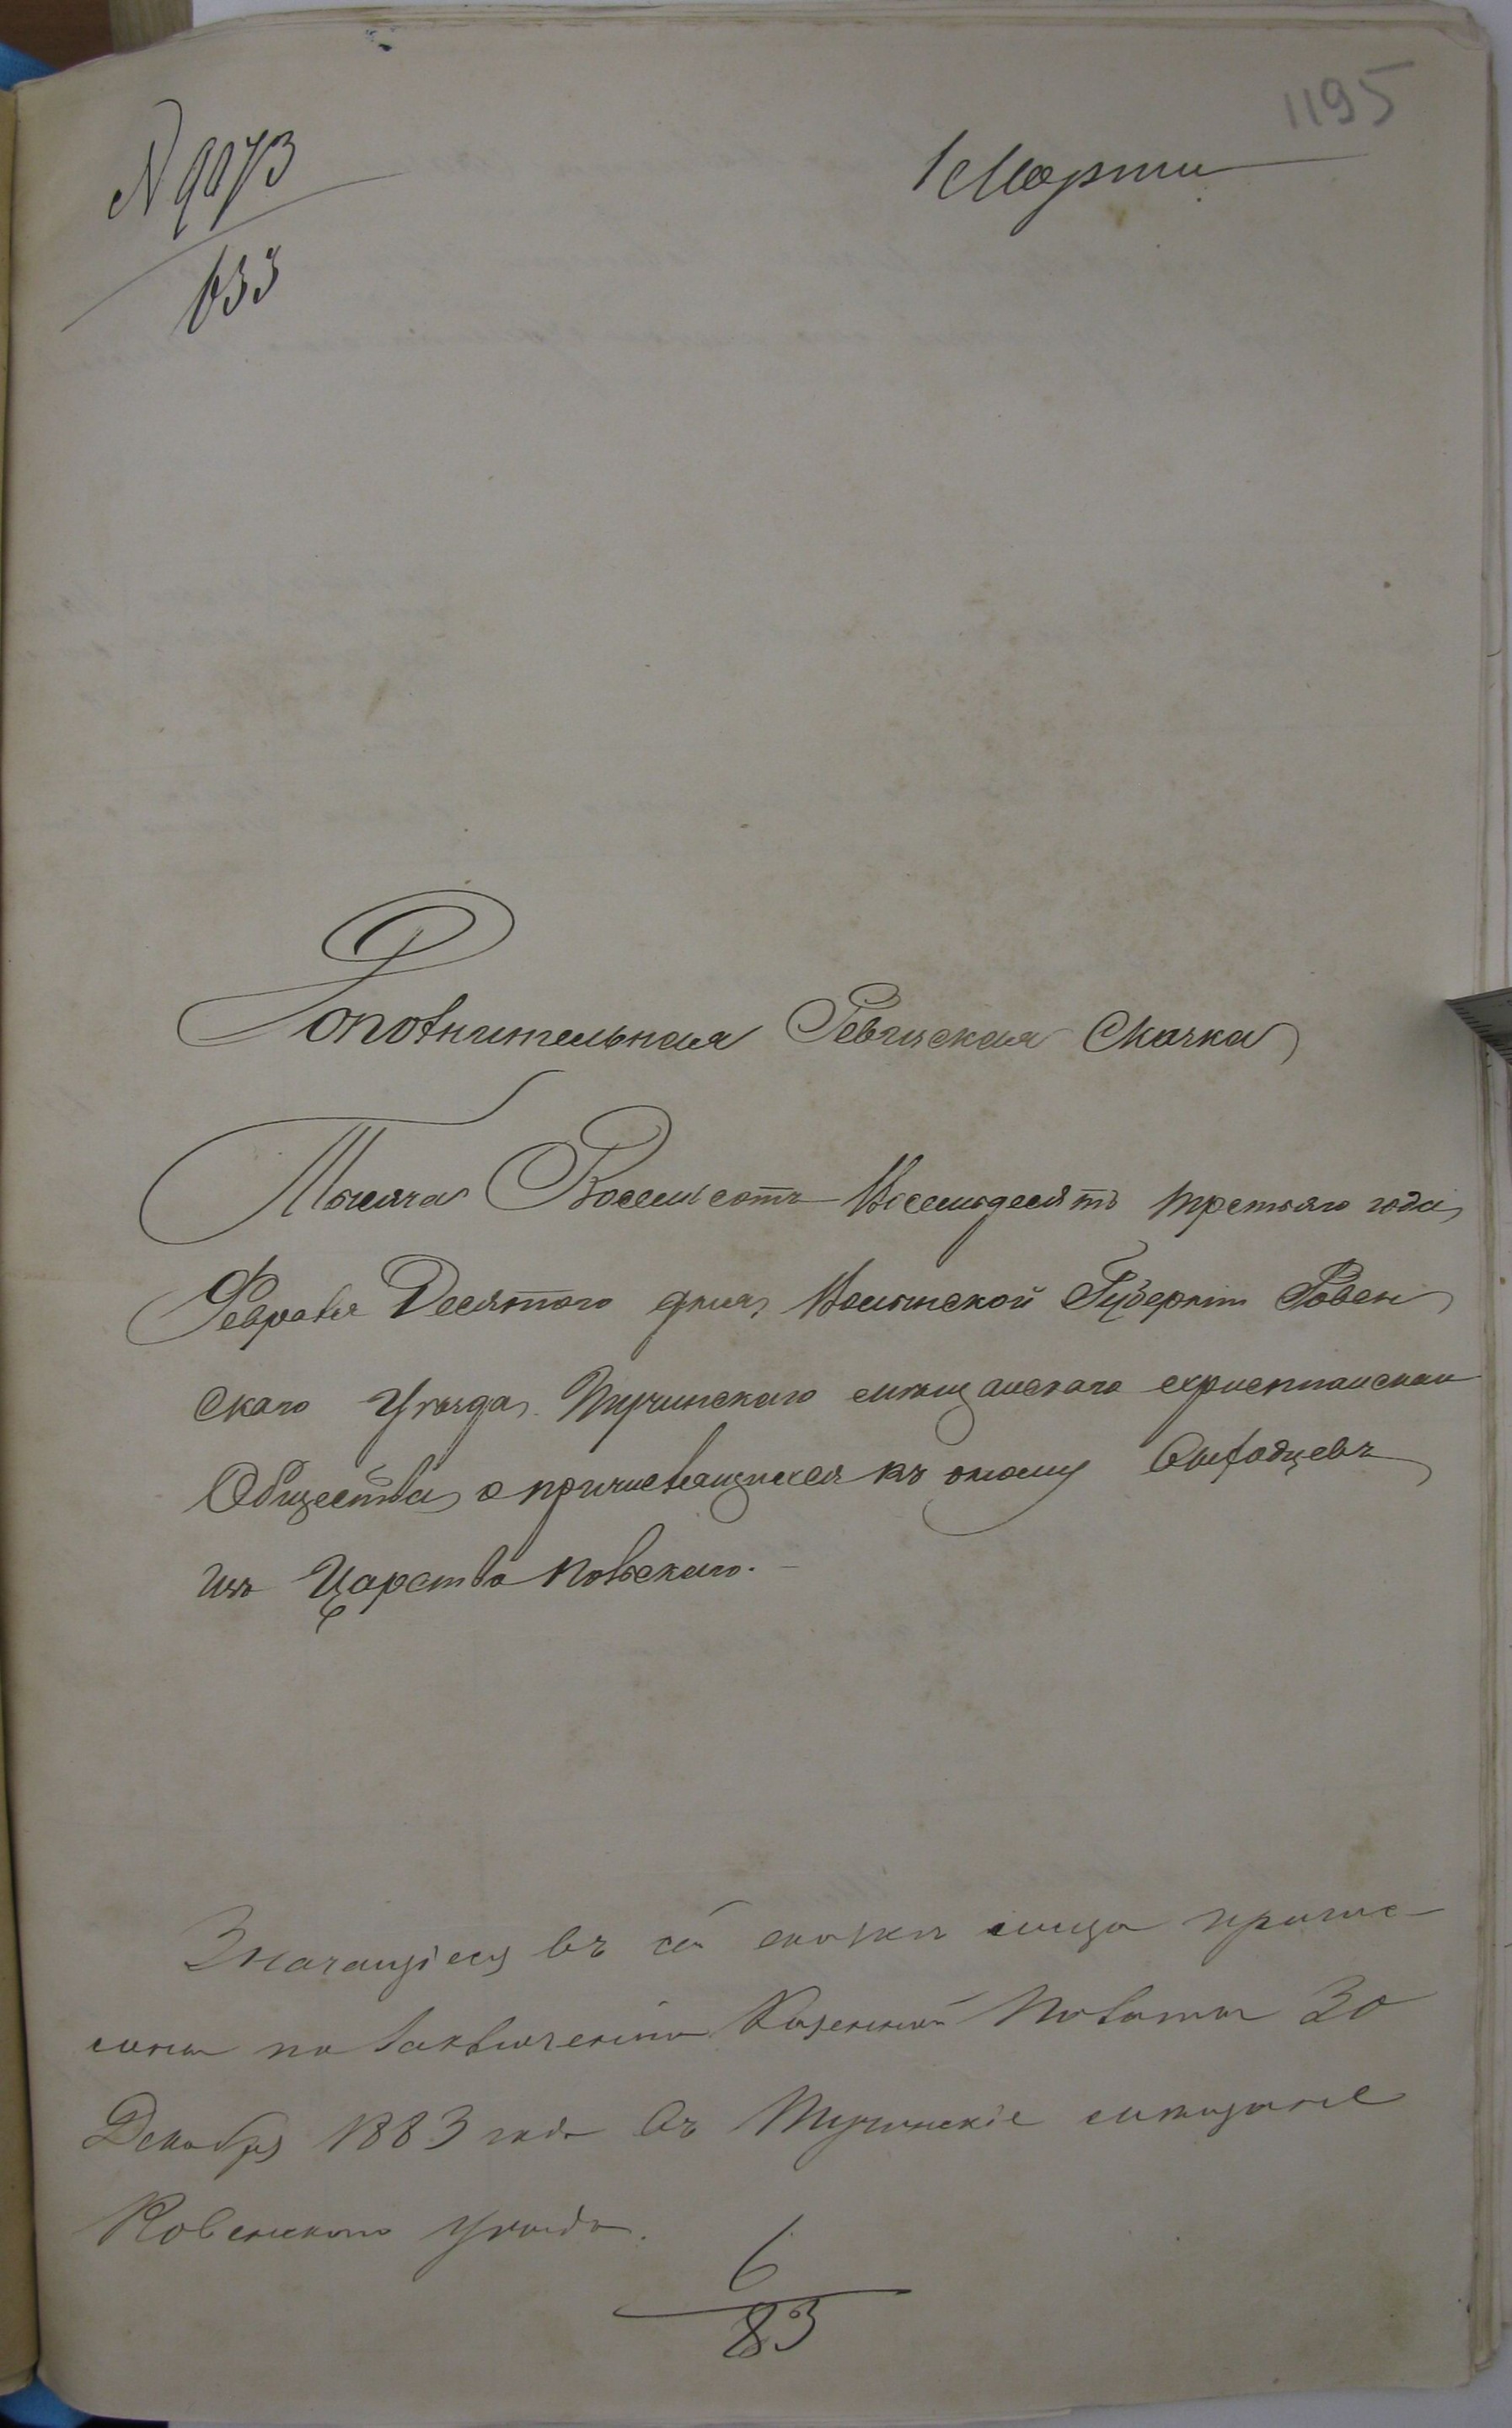 1195
N 9073
1 Марта
633
Дополнительная Ревизская Сказка
Тысяча Восемьсотъ Восемьдесятъ третьяго года,
Февраля Десятого дня, Волынской Губерніи Ровен
скаго Уезда, Тучинскаго мещанскаго христианскаго
Общества, о причисляющихся къ оному Выходцевъ
изъ Царства Польскаго. –
Значащіеся въ сей сказке лица причис-
лены по заключенію Казенной Палаты 30
Декабря 1883 года въ Тучинскіе мещане
Ровенскаго уезда.
6
83